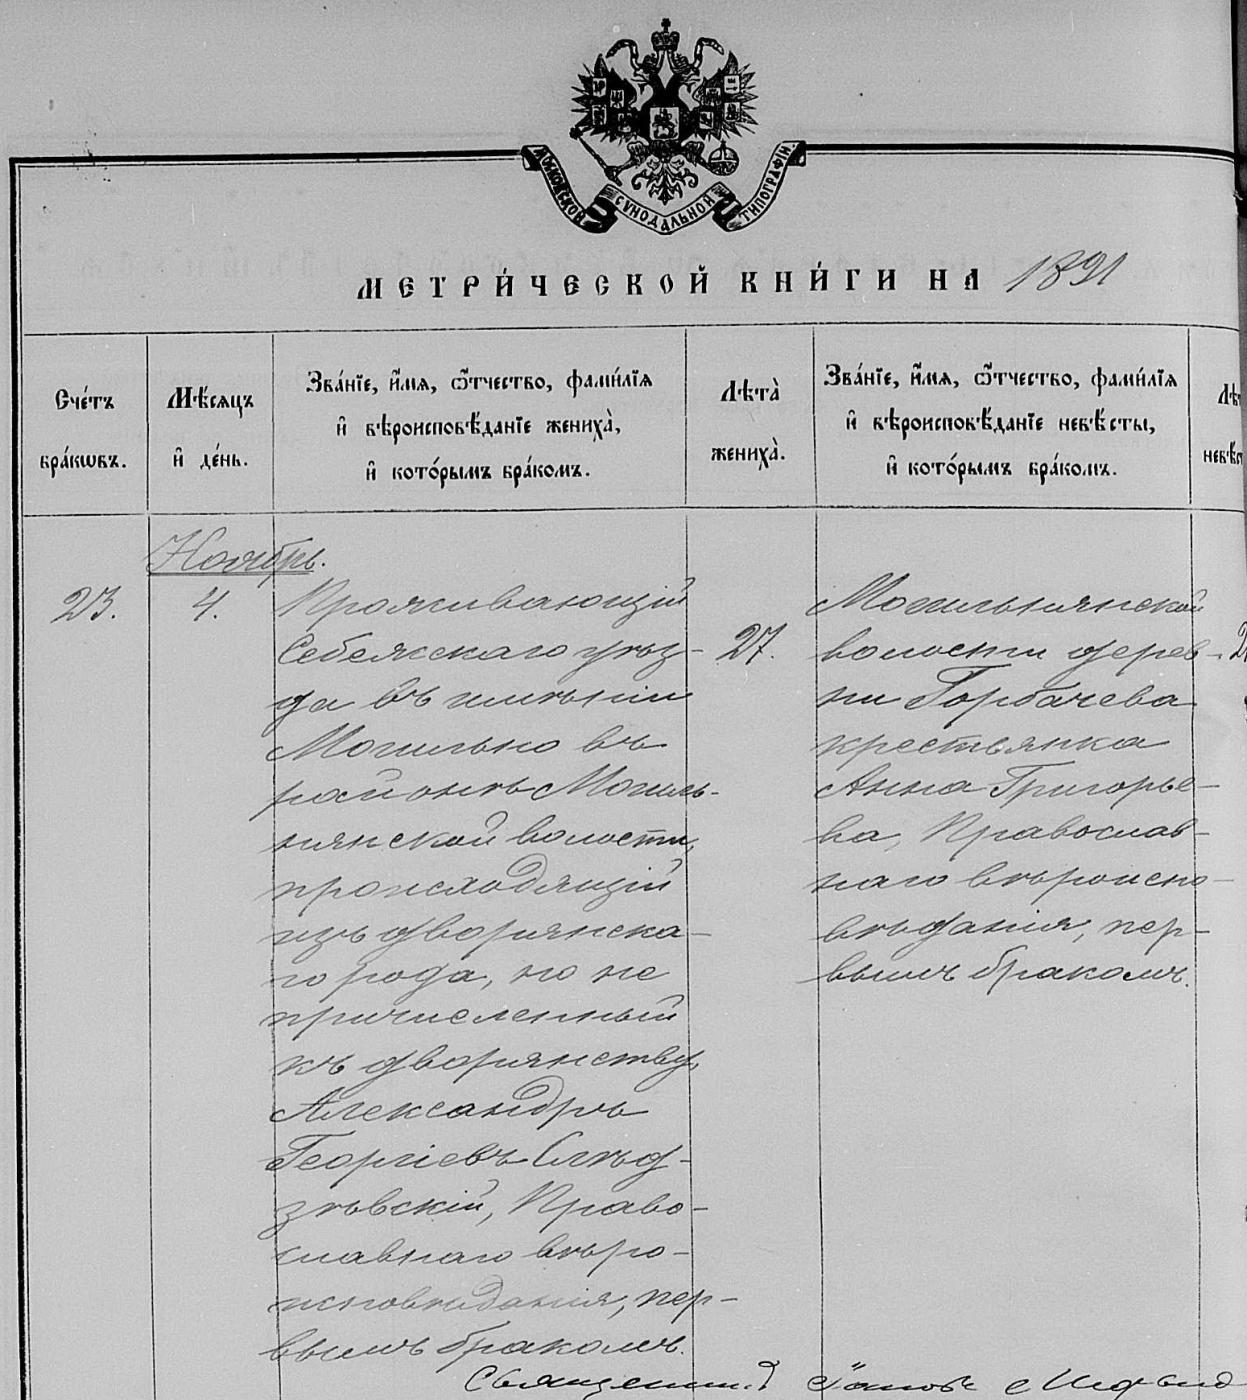 МОСКОВСКОЙ СУНОДАЛЬНОЙ ТИПОГРАФІИ.
МЕТРИ́ЧЕСКОЙ КНИ́ГИ НА 1891
Сче́тъ бра́кѡвъ.
Мѣ́сяцъ и҆ де́нь.
Зва́нїе, и҆́мѧ, ѻ҆́тчество, фами́лїѧ
и҆ вѣроисповѣ́данїе жениха̀,
и҆ кото́рымъ бра́комъ.
Лѣта̀ жениха̀.
Зва́нїе, и҆́мѧ, ѻ҆́тчество, фами́лїѧ
и҆ вѣроисповѣ́данїе невѣ́сты,
и҆ кото́рымъ бра́комъ.
Ноябрь.
23.
4.
Проживающій
Себежскаго уѣз-
да въ имѣніи
Могильно въ
районѣ Могиль-
нянской волости,
происходящій
изъ дворянска-
го рода, но не
причисленный
къ дворянству,
Александръ
Георгіевъ Слѣд-
зѣвскій, Право-
славнаго вѣро-
исповѣданія, пер-
вымъ бракомъ.
27.
Могильнянской
волости дерев-
ни Горбачева
крестьянка
Анна Григорье-
ва, Православ-
наго вѣроиспо-
вѣданія, пер-
вымъ бракомъ.
Священникъ